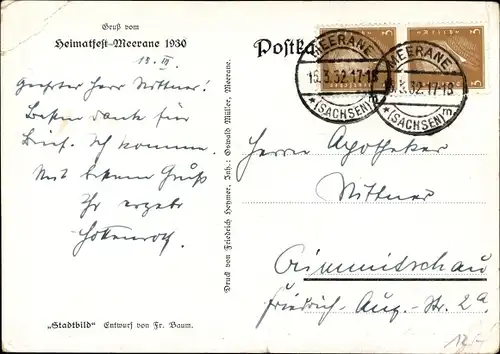 Gruß vom
Heimatfest-Meerane 1930
13. III.
Geehrter Herr Nittner!
Besten Dank für
Brief. Ich komme.
Mit bestem Gruß
Ihr ergebe
Postka
MEERANE
15.3.32.17-18
*(SACHSEN)
MEERANE
3.32.17-18
*(SACHSEN)
Herrn Apotheker
Nittner
Crimmitschau
Friedrich-Aug.-Str. 2a.
Druck von Friedrich Heymer, Inh.: Oswald Müller, Meerane.
„Stadtbild" Entwurf von Fr. Baum.